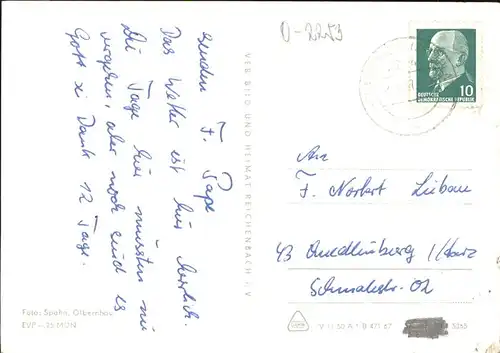 senden F. Pape
Das Wetter ist hier herrlich.
Die Tage hier müssten nie
vergehen, aber noch sind es
Gott sei Dank 12 Tage.
Foto: Spahn, Olbernhau
EVP –.25 MDN
VEB BILD UND HEIMAT REICHENBACH I. V.
0-2253
DEUTSCHE
DEMOKRATISCHE REPUBLIK
10
An
F. Norbert Liebau
43 Quedlinburg / Harz
Schmalestr. 02
V 11 50 A 1 B 471 67
5253